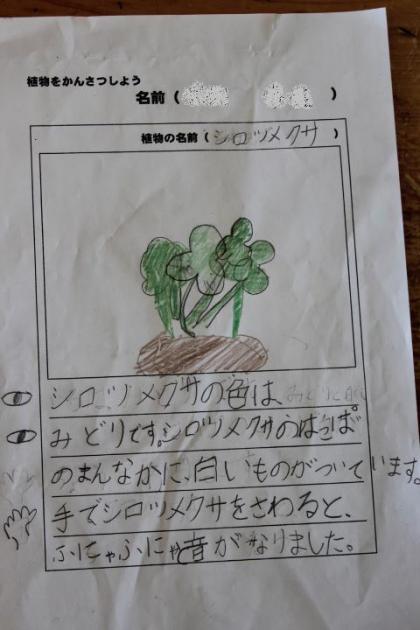 植物をかんさつしよう
名前（　　　）
植物の名前（シロツメクサ）
シロツメクサの色は、
みどりです。シロツメクサのはっぱ
のまんなかに、白いものがついています。
手でシロツメクサをさわると、
ふにゃふにゃ音がなりました。